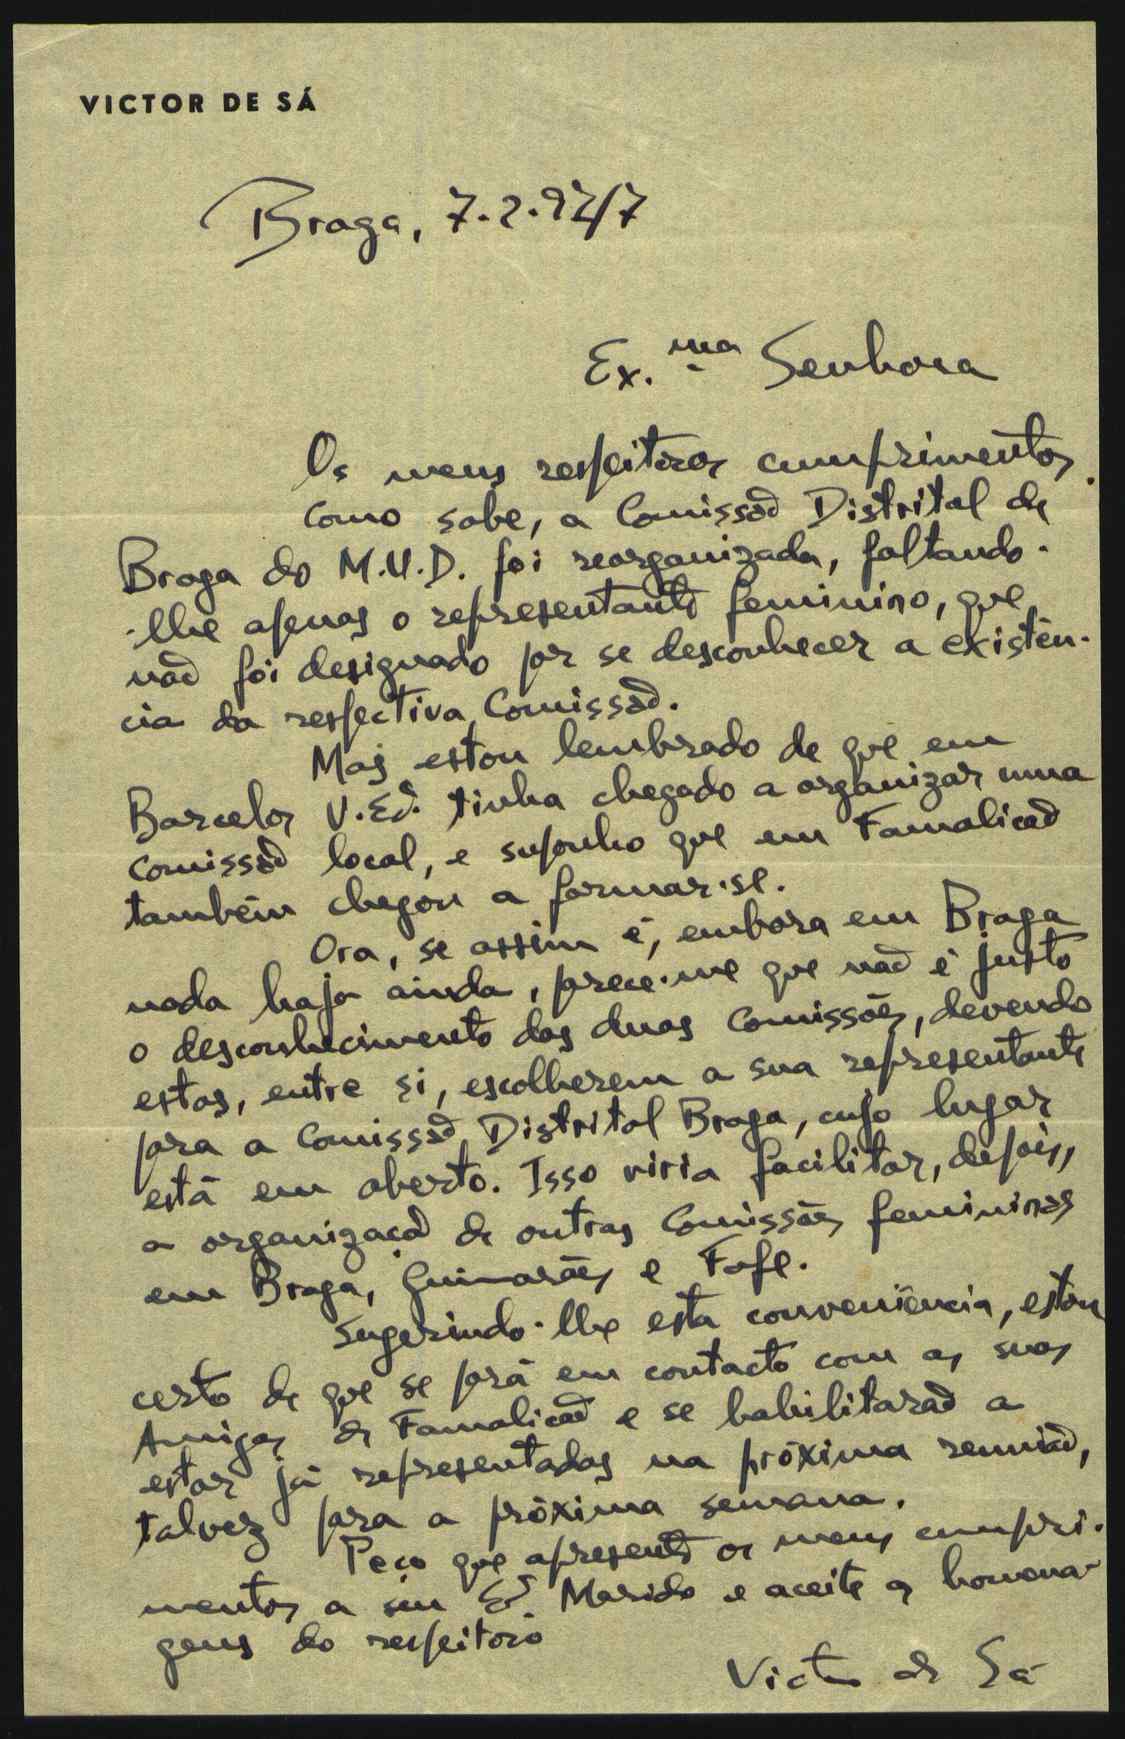 VICTOR DE SÁ
Braga, 7.2.947
Ex.ma Senhora
Os meus respeitosos cumprimentos.
Como sabe, a Comissão Distrital de
Braga do M.U.D. foi reorganizada, faltando-
-lhe apenas o representante feminino, que
não foi designado por se desconhecer a existên-
cia da respectiva Comissão.
Mas estou lembrado de que em
Barcelos V. Ex.ª tinha chegado a organizar uma
Comissão local, e suponho que em Famalicão
também chegou a formar-se.
Ora, se assim é, embora em Braga
nada haja ainda, parece-me que não é justo
o desconhecimento das duas Comissões, devendo
estas, entre si, escolherem a sua representante
para a Comissão Distrital Braga, cujo lugar
está em aberto. Isso viria facilitar, depois,
a organização de outras Comissões femininas
em Braga, Guimarães e Fafe.
Sugerindo-lhe esta conveniência, estou
certo de que se porá em contacto com as suas
Amigas de Famalicão e se habilitarão a
estar já representadas na próxima reunião,
talvez para a próxima semana.
Peço que apresente os meus cumpri-
mentos a seu Ex.º Marido e aceite as homena-
gens do respeitoso
Victor de Sá